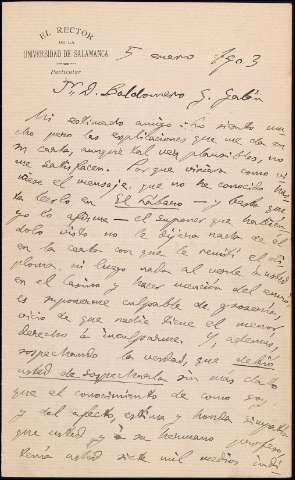 EL RECTOR
DE LA
UNIVERSIDAD DE SALAMANCA
Particular
5 enero 1903
Sr. D. Baldomero G. Galán
Mi estimado amigo: he siento mu-
cho pero las explicaciones que me da en
su carta, aunque tal vez plausibles, no
me satisfacen. Porque viniera como vi-
niese el mensaje, que no he conocido has-
ta leerlo en El Lábaro — y basta que
yo lo afirme — el suponer que habién-
dolo visto no le dijera nada de él
en la carta con que le remití el di-
ploma, ni luego nada al verle a usted
en el Casino y hacer mención del envío
es suponerme culpable de grosería,
vicio de que nadie tiene el menor
derecho á inculparme. Y además,
sospechando la verdad, que debió
usted de sospecharla sin más dato
que el conocimiento de como soy
y del afecto, estima y honda simpatía
que usted y á su hermano profeso,
tenía usted siete mil medios indi-